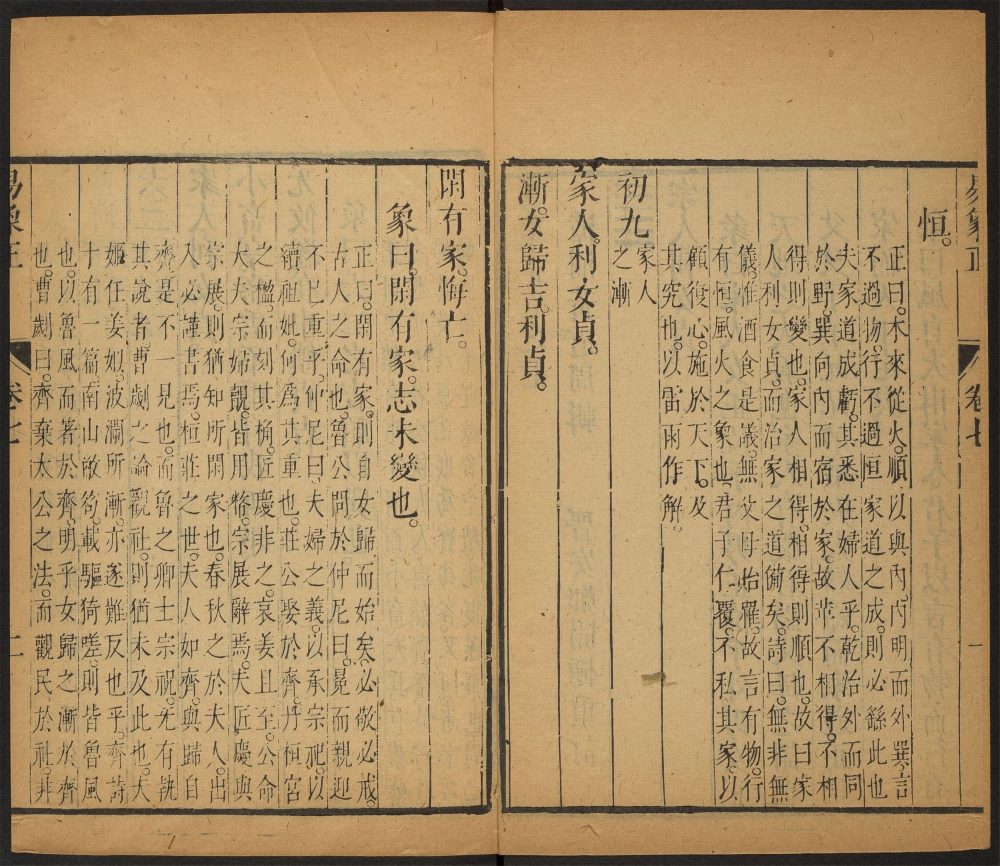 易象正
卷七
一
恒。
正曰。木來從火。順以與內。內明而外巽。言
不過物。行不過恒。家道之成。則必繇此也
夫家道成虧。其悉在婦人乎。乾治外而同
於野。巽向內而宿於家。故革不相得。不相
得則變也。家人相得。相得則順也。故曰家
人利女貞。而治家之道備矣。詩曰。無非無
儀。惟酒食是議。無父母怡罹。故言有物。行
有恒。風火之象也。君子仁覆。不私其家。以
顧復心。施於天下。及
其究也。以雷雨作解。
初九
家人
之漸
家人。利女貞。
漸。女歸吉。利貞。
閑有家。悔亡。
象曰。閑有家。志未變也。
正曰。閑有家。則自女歸而始矣。必敬必戒。
古人之命也。魯公問於仲尼曰。冕而親迎
不已重乎。仲尼曰。夫婦之義。以承宗祀。以
續祖妣。何為其重也。莊公娶於齊。丹桓宮
之楹。而刻其桷。匠慶非之。哀姜且至。公命
大夫宗婦覿。皆用幣。宗展辭焉。夫匠慶與
宗展。則猶知所閑家也。春秋之於夫人。出
入必謹書焉。桓莊之世。夫人如齊。與歸自
齊。是不一見也。而魯之卿士宗祝。旡有執
其說者。曹劌之論觀社。則猶未及此也。大
姬任姜姒。波瀾所漸。亦遂難反也乎。齊詩
十有一篇。南山敝笱。載驅猗嗟。則皆魯風
也。以魯風而著於齊。明乎女歸之漸於齊
也。曹劌曰。齊棄太公之法。而觀民於社。非
易象正
卷七
二